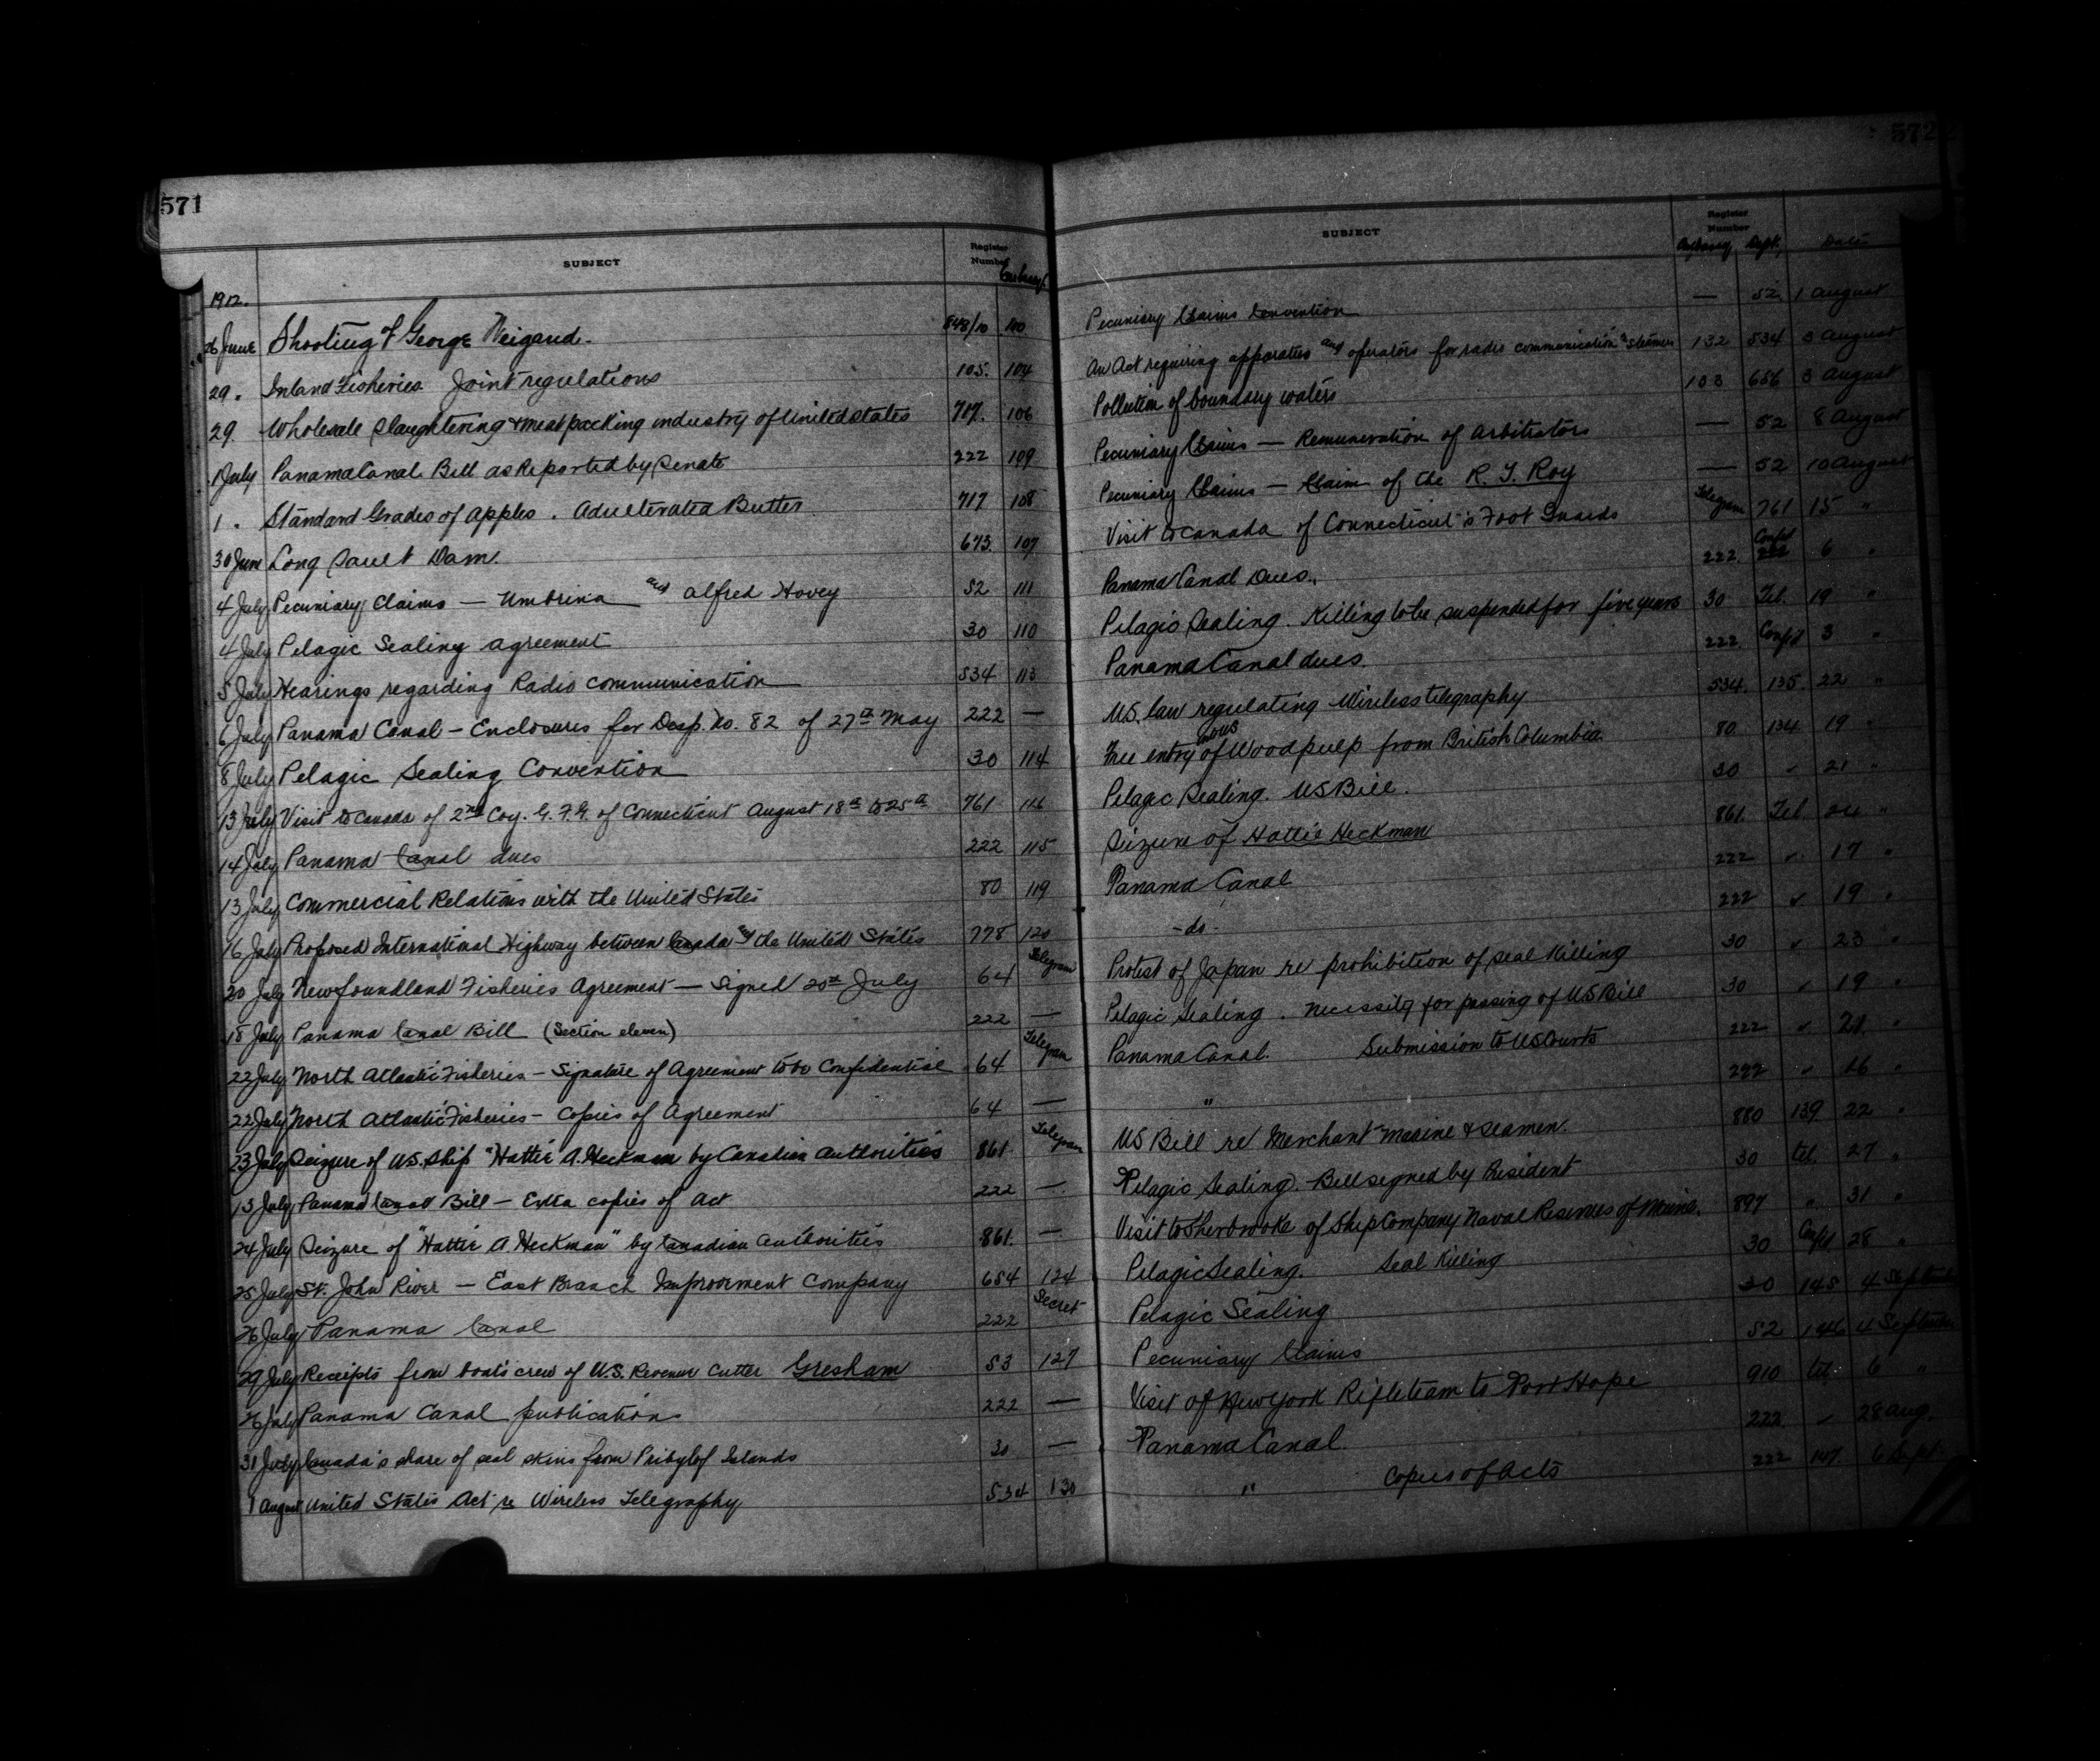 571
SUBJECT
Register
Number
Embassy
1912.
26 June Shooting of George Weigand. 848/10 100
29. Inland Fisheries Joint regulations 105. 104
29. Wholesale slaughtering & meat packing industry of United States 717. 106
1 July Panama Canal Bill as Reported by Senate 222 109
1 . Standard Grades of Apples. Adulterated Butter 717 108
30 June Long Sault Dam. 673 107
4 July Pecuniary Claims — Umbrina and Alfred Hovey 52 111
4 July Pelagic Sealing Agreement 30 110
5 July Hearings regarding Radio communication 534 113
6 July Panama Canal — Enclosures for Desp. No. 82 of 27th May 222 —
8 July Pelagic Sealing Convention 30 114
13 July Visit to Canada of 2nd Coy. G. F. G. of Connecticut August 18th to 25th 761 116
14 July Panama Canal dues 222 115
13 July Commercial Relations with the United States 80 119
16 July Proposed International Highway between Canada and the United States 778 120
20 July Newfoundland Fisheries Agreement — Signed 20th July 64 Telegram
18 July Panama Canal Bill (Section eleven) 222 —
22 July North Atlantic Fisheries — Signature of Agreement to be Confidential 64 Telegram
22 July North Atlantic Fisheries — Copies of Agreement 64 —
23 July Seizure of U.S. Ship "Hattie A. Heckman" by Canadian Authorities 861. Telegram
13 July Panama Canal Bill — Extra copies of Act 222 —
24 July Seizure of "Hattie A. Heckman" by Canadian Authorities 861. —
25 July St. John River — East Branch Improvement Company 654 124
26 July Panama Canal 222 Secret
29 July Receipts from boat's crew of U.S. Revenue Cutter Gresham 53 127
26 July Panama Canal publications 222 —
31 July Canada's share of seal skins from Pribylof Islands 30 —
1 August United States Act re Wireless Telegraphy 534 130
572
SUBJECT
Register
Number
Embassy Dept. Date
Pecuniary Claims Convention — 52 1 August
An Act requiring apparatus and operators for radio communication on Steamers 132 534 3 August
Pollution of boundary waters 133 656 3 August
Pecuniary Claims — Remuneration of Arbitrators — 52 8 August
Pecuniary Claims — Claim of the R. T. Roy — 52 10 August
Visit to Canada of Connecticut's Foot Guards Telegram 761 15 "
Panama Canal Dues. 222 Confd 6 "
Pelagic Sealing. Killing to be suspended for five years 30 Tel. 19 "
Panama Canal dues. 222. Confd 3 "
U.S. law regulating Wireless telegraphy 534. 135. 22 "
Free entry into US of Woodpulp from British Columbia 80 134 19 "
Pelagic Sealing. US Bill. 30 " 21 "
Seizure of Hattie Heckman 861. Tel. 24 "
Panama Canal 222 " 17 "
-do- 222 " 19 "
Protest of Japan re prohibition of seal Killing 30 " 23 "
Pelagic Sealing. Necessity for passing of US Bill 30 " 19 "
Panama Canal. Submission to US Courts 222 " 21 "
" 222 " 16 "
US Bill re Merchant Marine & Seamen. 880 139 22 "
Pelagic Sealing. Bill signed by President 30 tel. 27 "
Visit to Sherbrooke of Ship Company Naval Reserves of Maine. 897 " 31 "
Pelagic Sealing. Seal Killing 30 Confd 28 "
Pelagic Sealing 30 145 4 September
Pecuniary Claims 52 146 4 September
Visit of New York Rifle team to Port Hope 910 tel. 6 "
Panama Canal. 222 " 28 Aug.
" Copies of Acts 222 147. 6 Sept.